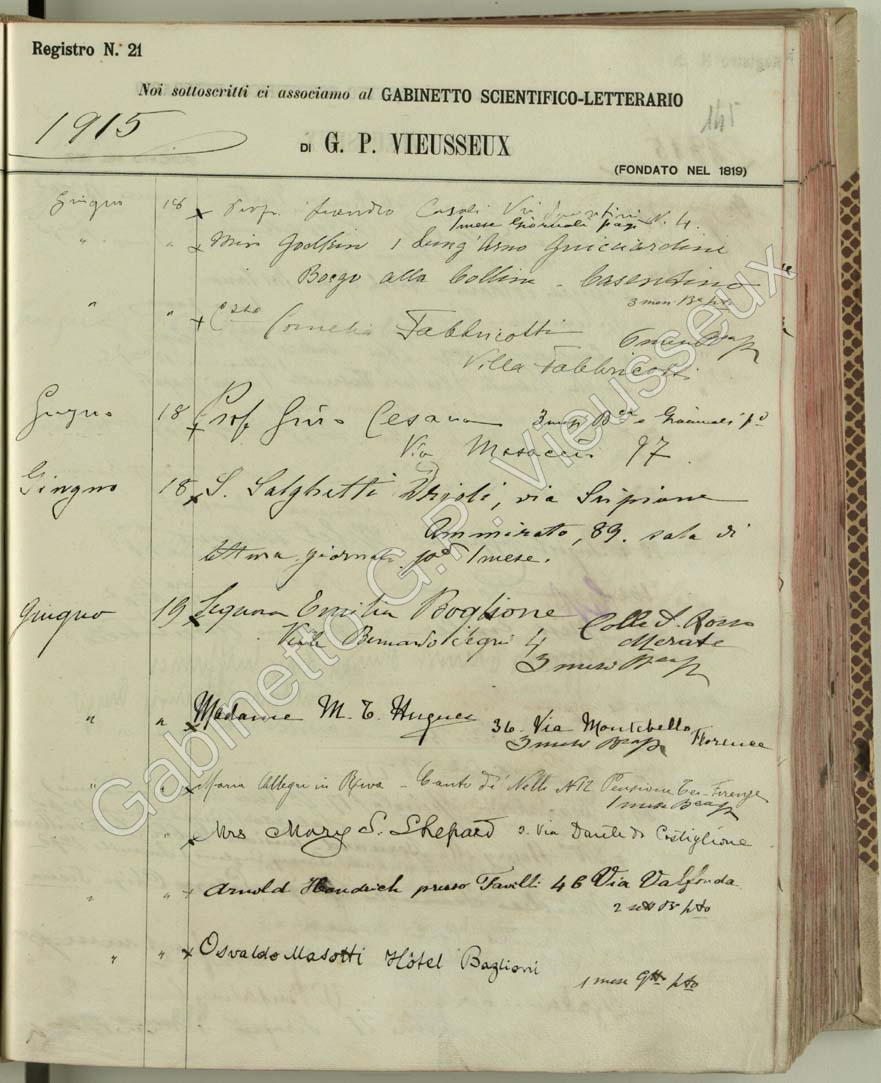 Registro N. 21
Noi sottoscritti ci associamo al GABINETTO SCIENTIFICO-LETTERARIO
145
1915
DI G. P. VIEUSSEUX
(FONDATO NEL 1819)
Giugno 18 x Casoli Via N. 4.
1 mese Giornali pag
" " x Miss Godkin 1 Lung'Arno Guicciardini
Borgo alla Collina - Casentino
3 mesi
" " x Cornelia Fabbricotti
6 mesi
Villa Fabbricotti
Giugno 18 x Prof. Cesana 3 mesi e Giornali
Via Masaccio 97
Giugno 18 x S. Salghetti Drioli, via Scipione
Ammirato, 89. sala di
lettura giornali 1 mese.
Giugno 19 x Signora Emilia Boglione Colle S. Rosso
Viale Bernardo Segni 4 Merate
3 mesi
" " x Madame M. T. Hugues 36 Via Montebello Florence
3 mesi
" " x Maria Allegri in Riva - Canto de' Nelli N 12 Pensione - Firenze
1 mese
" x Mrs Mary S. Shepard 3. Via Dante da Castiglione
" " x Arnold Hendrich presso Favilli 46 Via Valfonda
2 sett Br pto
" " x Osvaldo Masotti Hôtel Baglioni
1 mese pto
Gabinetto G.P. Vieusseux